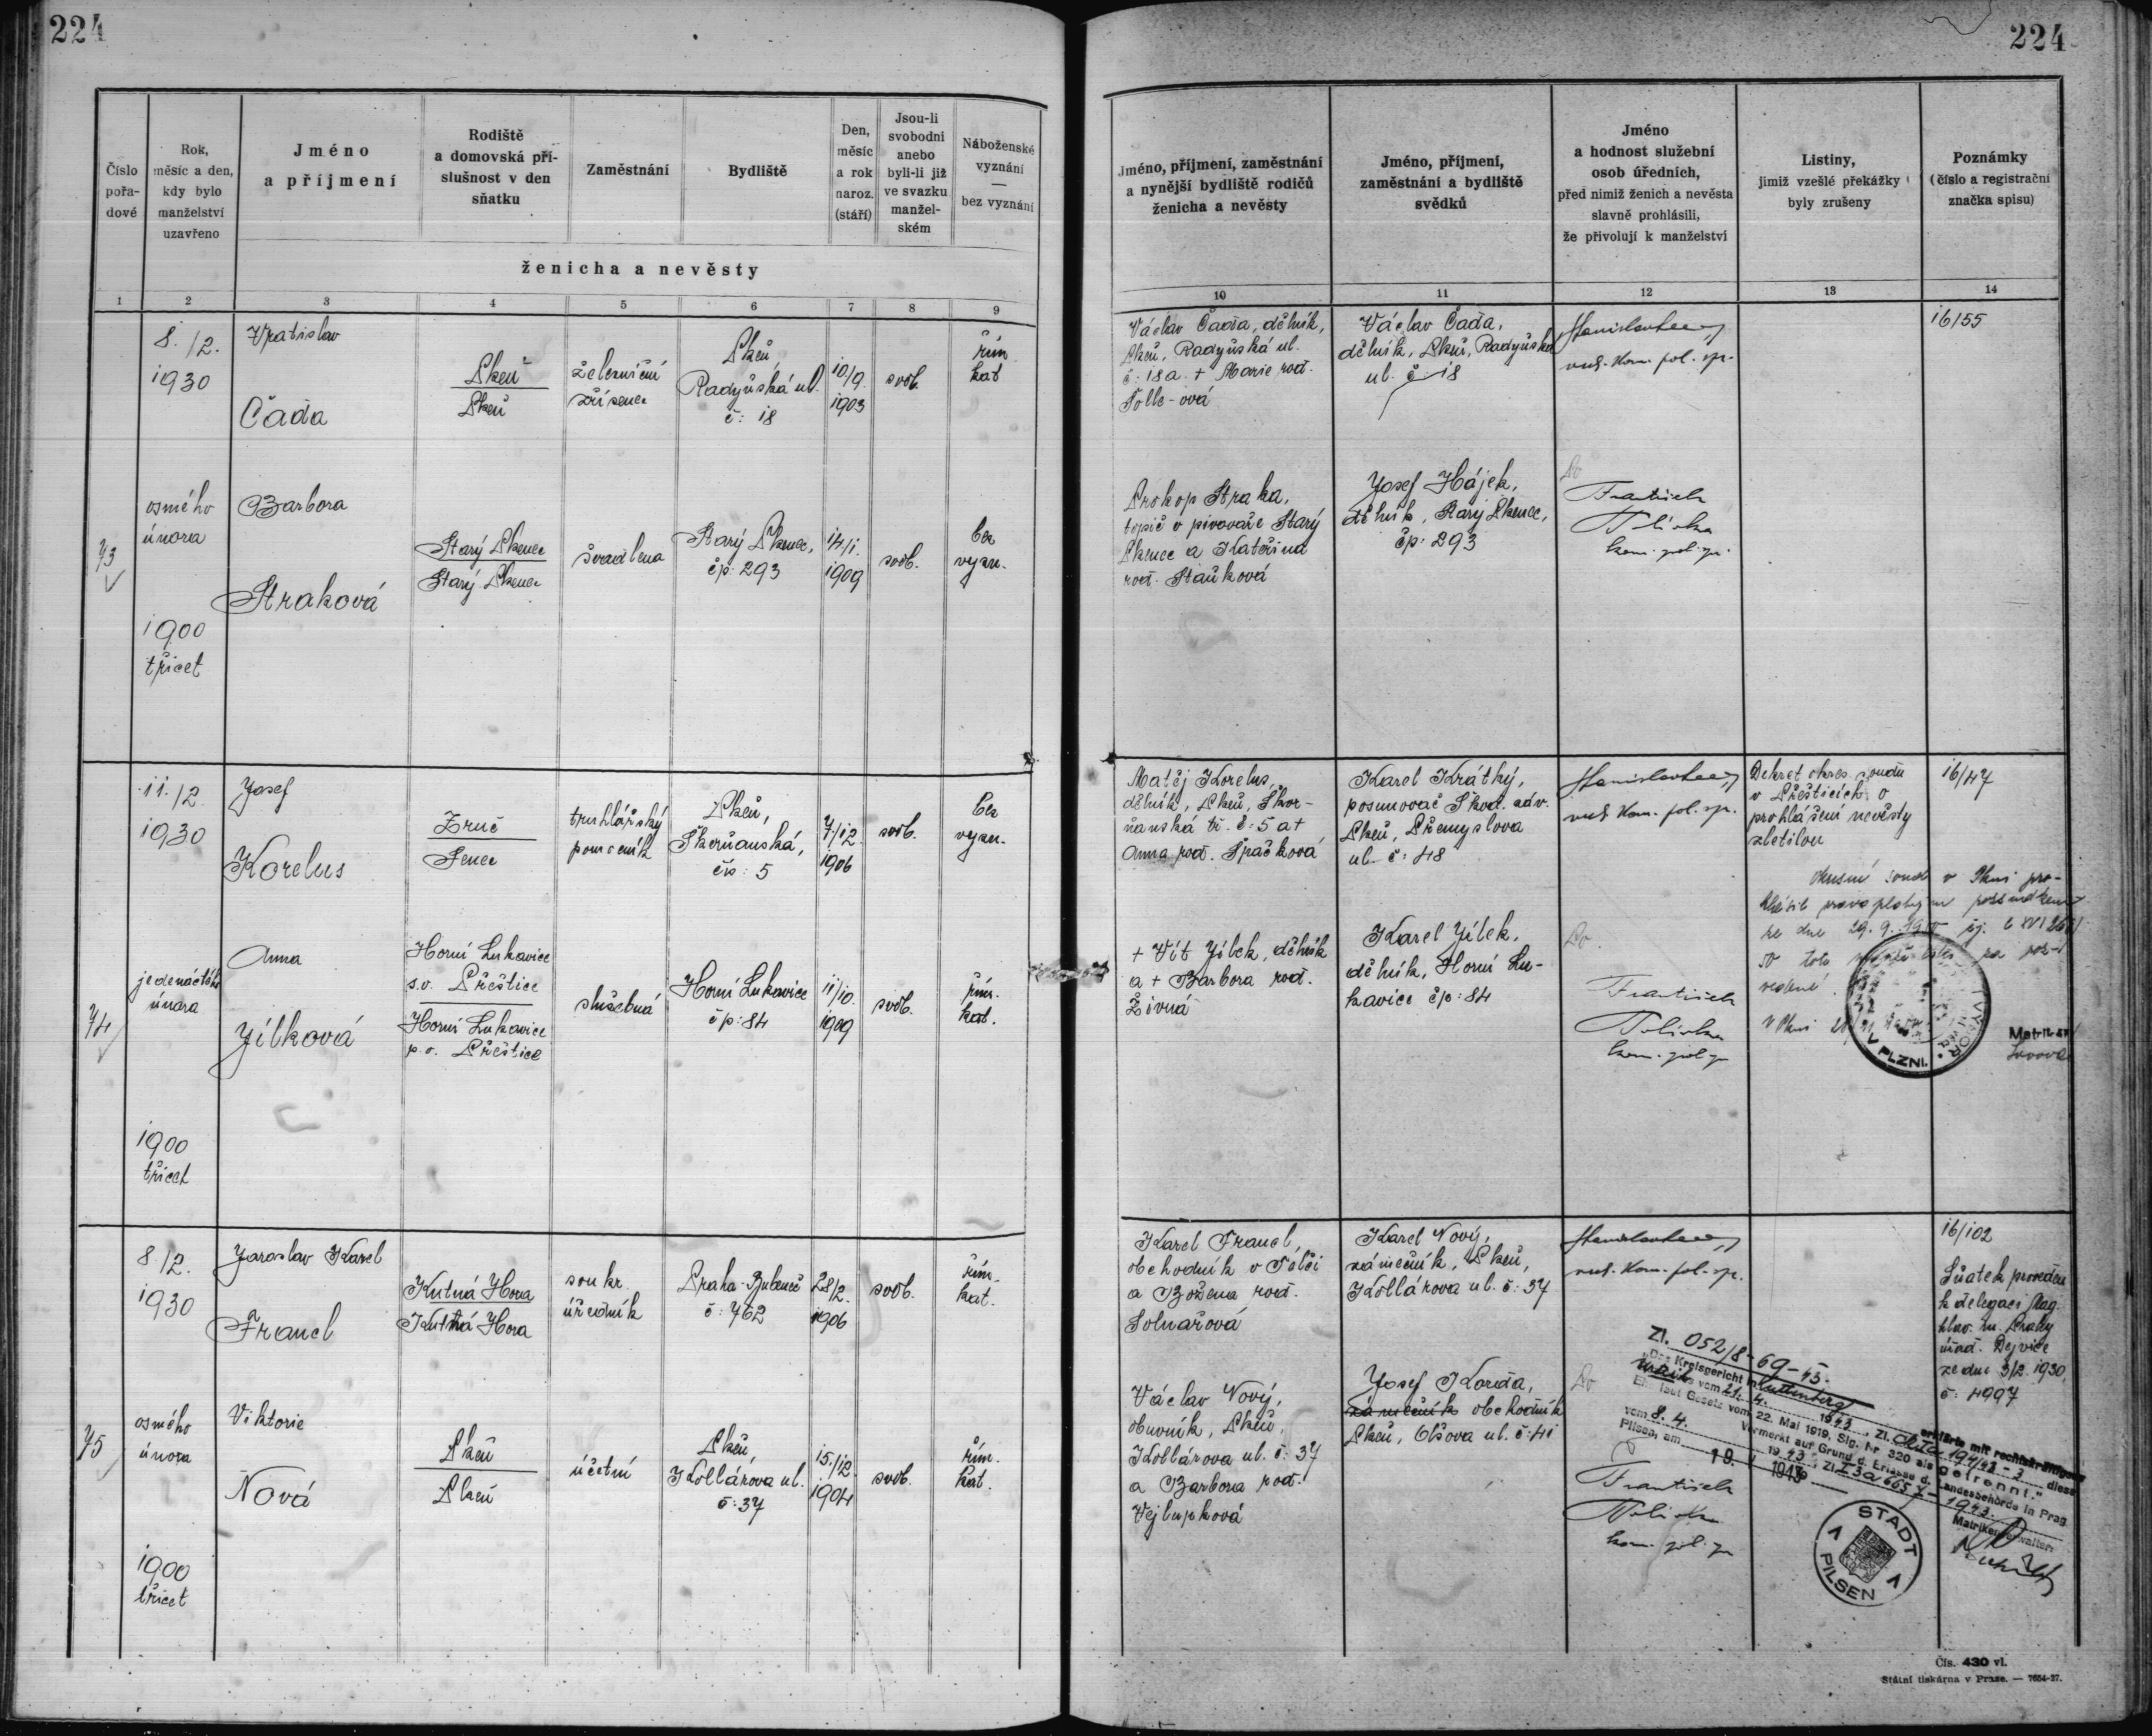 224
224
Číslo
pořa-
dové
Rok,
měsíc a den,
kdy bylo
manželství
uzavřeno
Jméno
a příjmení
Rodiště
a domovská pří-
slušnost v den
sňatku
Zaměstnání
Bydliště
Den,
měsíc
a rok
naroz.
(stáří)
Jsou-li
svobodni
anebo
byli-li již
ve svazku
manžel-
ském
Náboženské
vyznání
—
bez vyznání
ženicha a nevěsty
1 2 3 4 5 6 7 8 9
Jméno, příjmení, zaměstnání
a nynější bydliště rodičů
ženicha a nevěsty
Jméno, příjmení,
zaměstnání a bydliště
svědků
Jméno
a hodnost služební
osob úředních,
před nimiž ženich a nevěsta
slavně prohlásili,
že přivolují k manželství
Listiny,
jimiž vzešlé překážky
byly zrušeny
Poznámky
(číslo a registrační
značka spisu)
10 11 12 13 14
73
8./2.
1930
osmého
února
1900
třicet
Vratislav
Čada
Plzeň
Plzeň
železniční
zřízenec
Plzeň,
Radyňská ul.
č: 18
10/9.
1903
svob.
řím.
kat
Barbora
Straková
Starý Plzenec
Starý Plzenec
švadlena
Starý Plzenec,
čp: 293
14/1.
1909
svob.
bez
vyzn.
Václav Čada, dělník,
Plzeň, Radyňská ul.
č: 18 a + Marie roz.
Václav Čada,
dělník, Plzeň, Radyňská
ul. č: 18
16/55
Prokop Straka,
topič v pivovaře Starý
Plzenec a Kateřina
roz. Staňková
Josef Hájek,
dělník, Starý Plzenec,
čp: 293
František
kom. pol. spr.
74
11./2.
1930
jedenáctého
února
1900
třicet
Josef
Korelus
Zruč
Senec
truhlářský
pomocník
Plzeň,
čís: 5
7/12.
1906
svob.
bez
vyzn.
Anna
Jílková
Horní Lukavice
s.o. Přeštice
Horní Lukavice
p.o. Přeštice
služebná
Horní Lukavice
čp: 84
11/10.
1909
svob.
řím.
kat.
Matěj Korelus,
dělník, Plzeň, Škvr-
ňanská tř. č: 5 a +
Anna roz. Špačková
Karel Krátký,
posunovač Škod. záv.
Plzeň, Přemyslova
ul. č: 48
Dekret okres. soudu
v Přešticích o
prohlášení nevěsty
zletilou
16/47
+ Vít Jílek, dělník
a + Barbora roz.
Živná
Karel Jílek,
dělník, Horní Lu-
kavice čp: 84
František
kom. pol. spr.
V PLZNI.
75
8./2.
1930
osmého
února
1900
třicet
Jaroslav Karel
Francl
Kutná Hora
Kutná Hora
soukr.
úředník
Praha-Bubeneč
č: 762
28/2.
1906
svob.
řím.
kat.
Viktorie
Nová
Plzeň
Plzeň
účetní
Plzeň,
Kollárova ul.
č: 37
15./12.
1904
svob.
řím.
kat.
Karel Francl,
obchodník v Telči
a Božena roz.
Solnařová
Karel Nový,
zámečník, Plzeň,
Kollárova ul. č: 37
16/102
Sňatek proveden
k delegaci Mag.
hlav. m. Prahy
úřad. Dejvice
ze dne 3/2. 1930,
č: 4997
Václav Nový,
obuvník, Plzeň,
Kollárova ul. č: 37
a Barbora roz.
Vejlupková
Josef Korda,
zámečník obchodník
Plzeň, Otšova ul. č: 41
František
kom. pol. spr.
Zl. 052/8-69-43.
„Das Kreisgericht in Kuttenberg erklärte mit rechtskräftigem
vom 21. 4. 1943, Zl. diese
Ehe laut Gesetz vom 22. Mai 1919, Slg. Nr. 320 als getrennt."
Vermerkt auf Grund d. Erlasse d. Landesbehörde in Prag
vom 8. 4. 1943, Zl. 1943.
Pilsen, am 19. 1943
Matrikenverwalter:
STADT
PILSEN
Čís. 430 vl.
Státní tiskárna v Praze. — 7654-27.